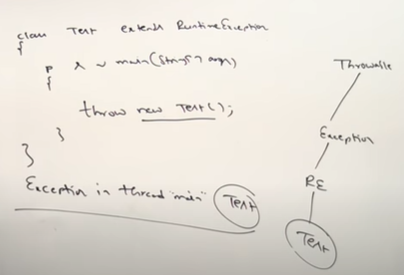 class Test extends RuntimeException
{
p s v main(String[] args)
{
throw new Test();
}
}
Exception in thread "main" Test
Throwable
Exception
RE
Test